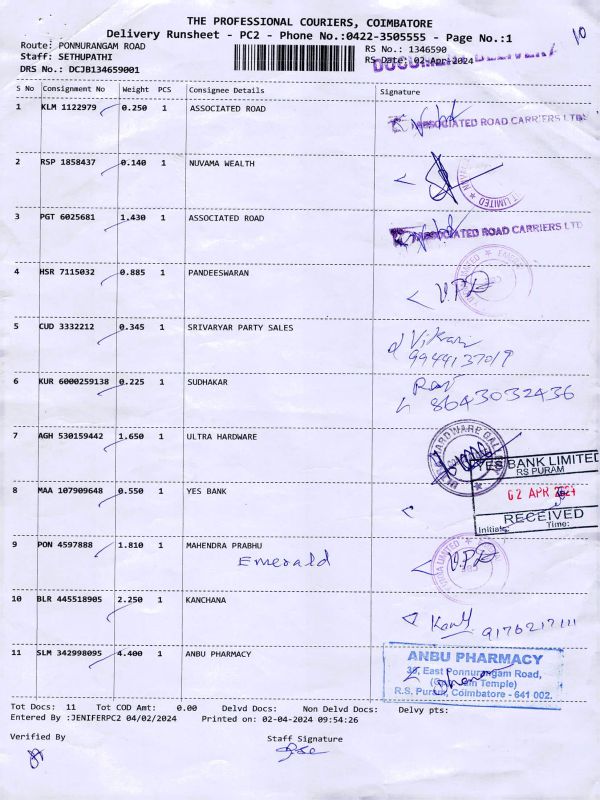 THE PROFESSIONAL COURIERS, COIMBATORE
Delivery Runsheet - PC2 - Phone No.:0422-3505555 - Page No.:1
10
Route: PONNURANGAM ROAD
RS No.: 1346590
Staff: SETHUPATHI
RS Date: 02-Apr-2024
DRS No.: DCJB134659001
S No Consignment No Weight PCS Consignee Details Signature
1 KLM 1122979 0.250 1 ASSOCIATED ROAD
ASSOCIATED ROAD CARRIERS LTD
2 RSP 1858437 0.140 1 NUVAMA WEALTH
LIMITED
3 PGT 6025681 1.430 1 ASSOCIATED ROAD
ASSOCIATED ROAD CARRIERS LTD
4 HSR 7115032 0.885 1 PANDEESWARAN
V.P.D
5 CUD 3332212 0.345 1 SRIVARYAR PARTY SALES
9944137019
6 KUR 6000259138 0.225 1 SUDHAKAR
8643032436
7 AGH 530159442 1.650 1 ULTRA HARDWARE
HARDWARE
YES BANK LIMITED
RS PURAM
8 MAA 107909648 0.550 1 YES BANK
02 APR
RECEIVED
Initial: Time:
9 PON 4597888 1.810 1 MAHENDRA PRABHU
Emerald
V.P.D
LIMITED
10 BLR 445518905 2.250 1 KANCHANA
9176217111
11 SLM 342998095 4.400 1 ANBU PHARMACY
ANBU PHARMACY
39, East Ponnurangam Road,
Temple)
R.S. Puram, Coimbatore - 641 002.
Tot Docs: 11 Tot COD Amt: 0.00 Delvd Docs: Non Delvd Docs: Delvy pts:
Entered By :JENIFERPC2 04/02/2024 Printed on: 02-04-2024 09:54:26
Verified By
Staff Signature